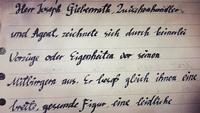 Herr Joseph Giebenrath, Zwischenhändler
und Agent, zeichnete sich durch keinerlei
Vorzüge oder Eigenheiten vor seinen
Mitbürgern aus. Er besaß gleich ihnen eine
breite, gesunde Figur, eine leidliche